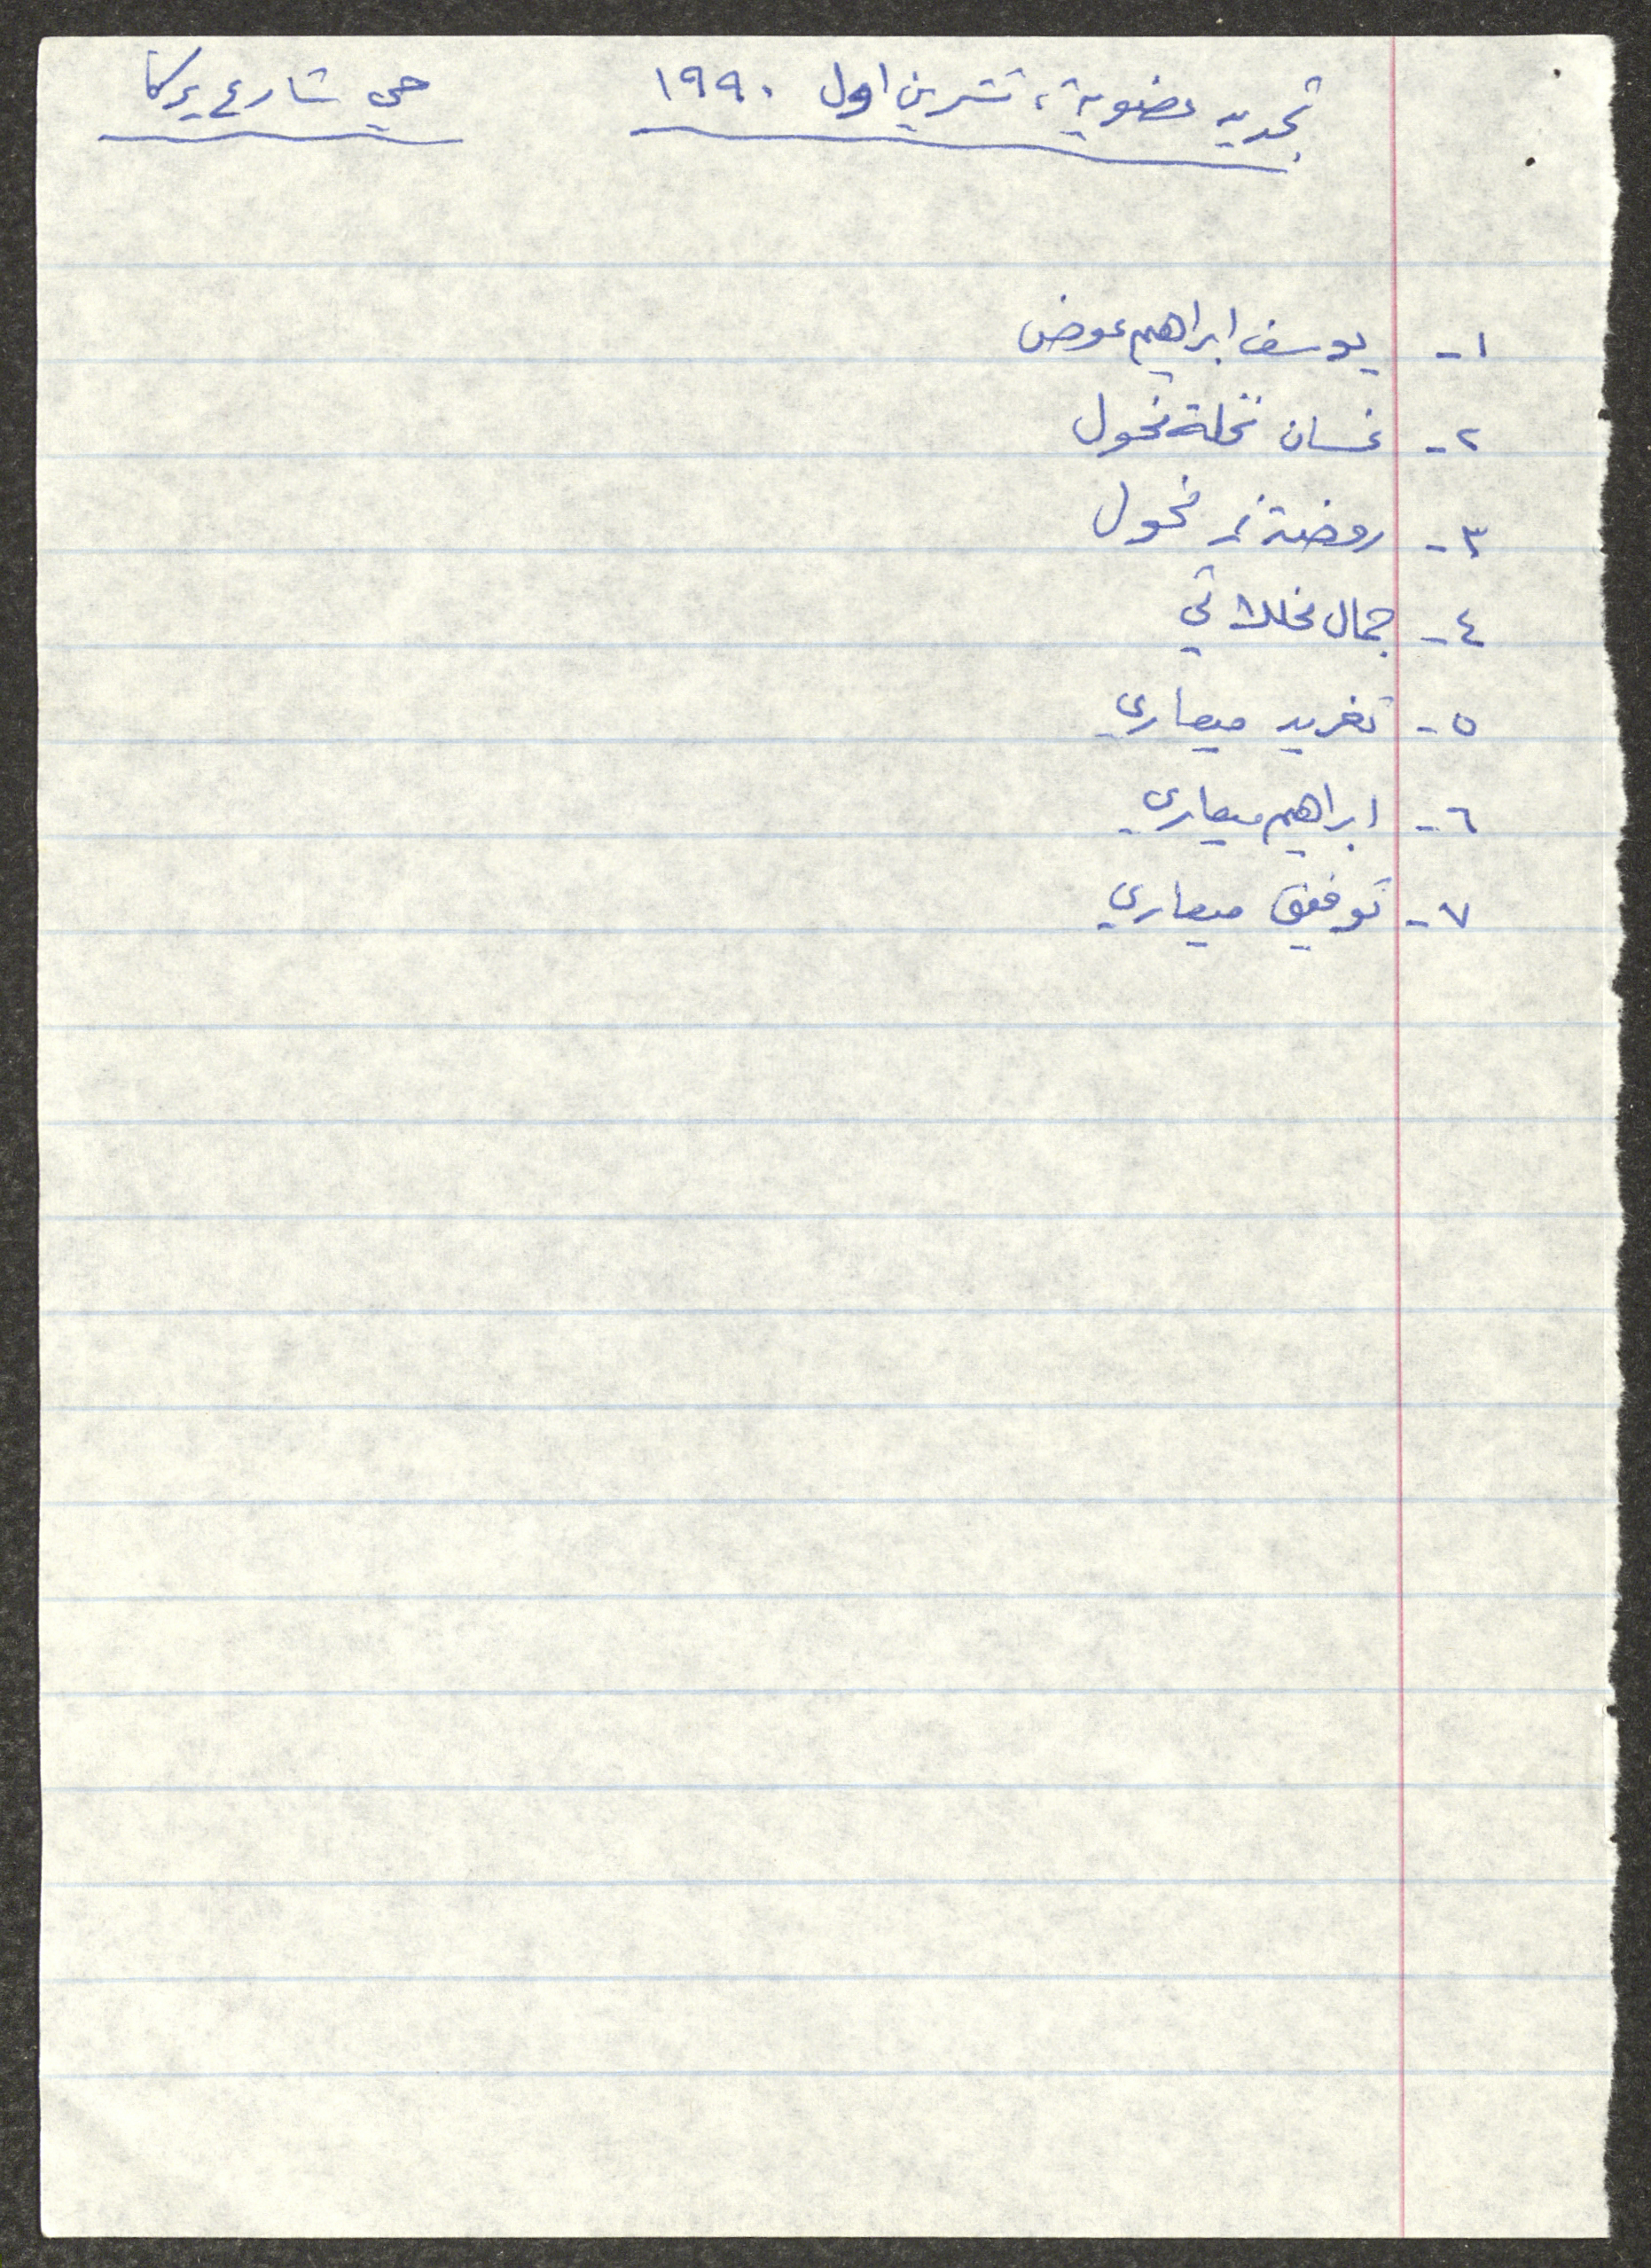 تجديد عضوية، تشرين اول ١٩٩٠ حي شارع يركا
١- يوسف ابراهيم عوض
٢- غسان نخلة نحول
٣- روضة نمر نحول
٤- جمال خلالاتي
٥- تغريد ميعاري
٦- ابراهيم ميعاري
٧- توفيق ميعاري